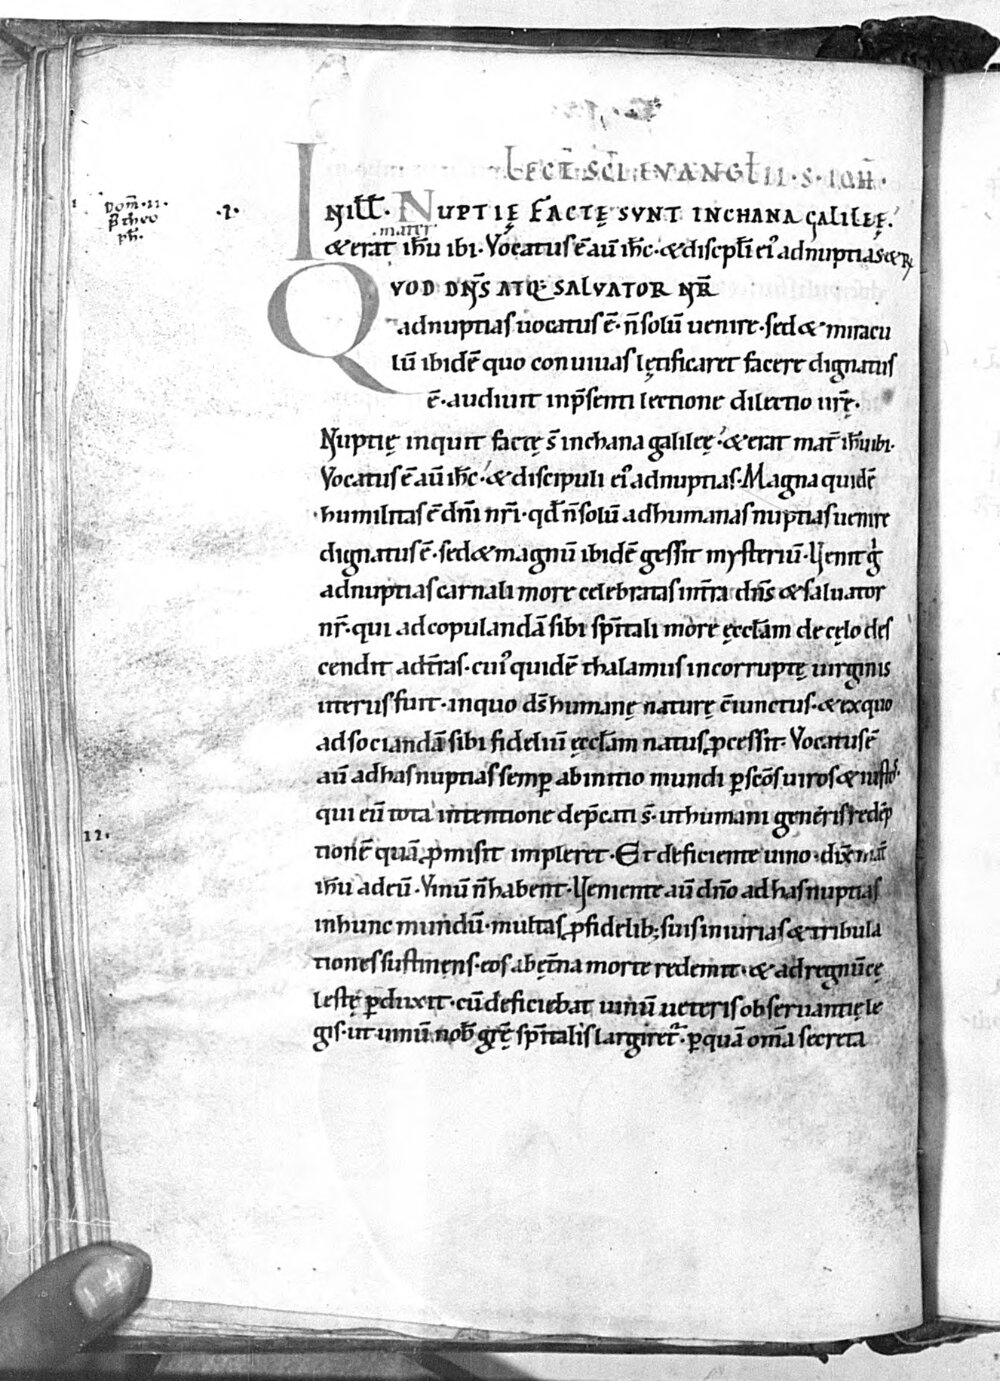 LECT̄ SC̄I EVANGL̄II · S · IOH̄ ·
Dom̄ · II ·
p̄ theo
ph̄ ·
· I ·
IN ILL̄ · NUPTIĘ FACTĘ SVNT IN CHANA GALILEĘ ·
mater
& erat ih̄u ibi · Vocatus ē aū ih̄c · & discipl̄i ei᷒ ad nuptias · & R̄
QVOD DN̄S ATQ; SALVATOR NR̄
ad nuptias uocatus ē · n̄ solū uenire · sed & miracu
lū ibidē quo conuiuas lętificaret facere dignatus
ē · audiuit in p̄senti lectione dilectio ur̄ę ·
Nuptię inquit factę s̄ in chana galileę · & erat mat̄ ih̄u ibi ·
Vocatus ē aū ih̄c · & discipuli ei᷒ ad nuptias · Magna quidē
humilitas ē dn̄i nr̄i · qd̄ n̄ solū ad humanas nuptias uenire
dignatus ē · sed & magnū ibidē gessit mysteriū · Uenit gͥ
ad nuptias carnali more celebratas int̄ra dn̄s & saluator
nr̄ · qui ad copulandā sibi sp̄itali more ęccl̄am de cęlo des
cendit ad t̄ras · cui᷒ quidē thalamus incorruptę uirginis
uterus fuit · in quo d̄s humanę naturę c̄iunctus · & ex quo
ad sociandā sibi fideliū ęccl̄am natus p̄cessit · Vocatus ē
aū ad has nuptias semp̄ ab initio mundi p̄ sc̄os uiros & iustos ·
qui eū tota intentione dep̄cati s̄ · ut humani generis redēp
tionē quā p̄misit impleret · Et deficiente uino · dix̄ mat̄
12 ·
ih̄u ad eū · Vinū n̄ habent · Ueniente aū dn̄o ad has nuptias
in hunc mundū · multas p̄ fidelib; suis iniurias & tribula
tiones sustinens · eos ab ęt̄na morte redemit · & ad regnū cę
lestę p̄duxit · cū deficiebat uinū ueteris obseruantię le
gis · ut uinū nob̄ gr̄ę sp̄italis largiret᷑ · p̄ quā om̄a secreta